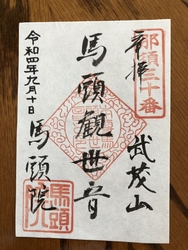 那須三十番
奉拝
武茂山
馬頭観世音
馬頭院
令和四年九月十日
馬頭